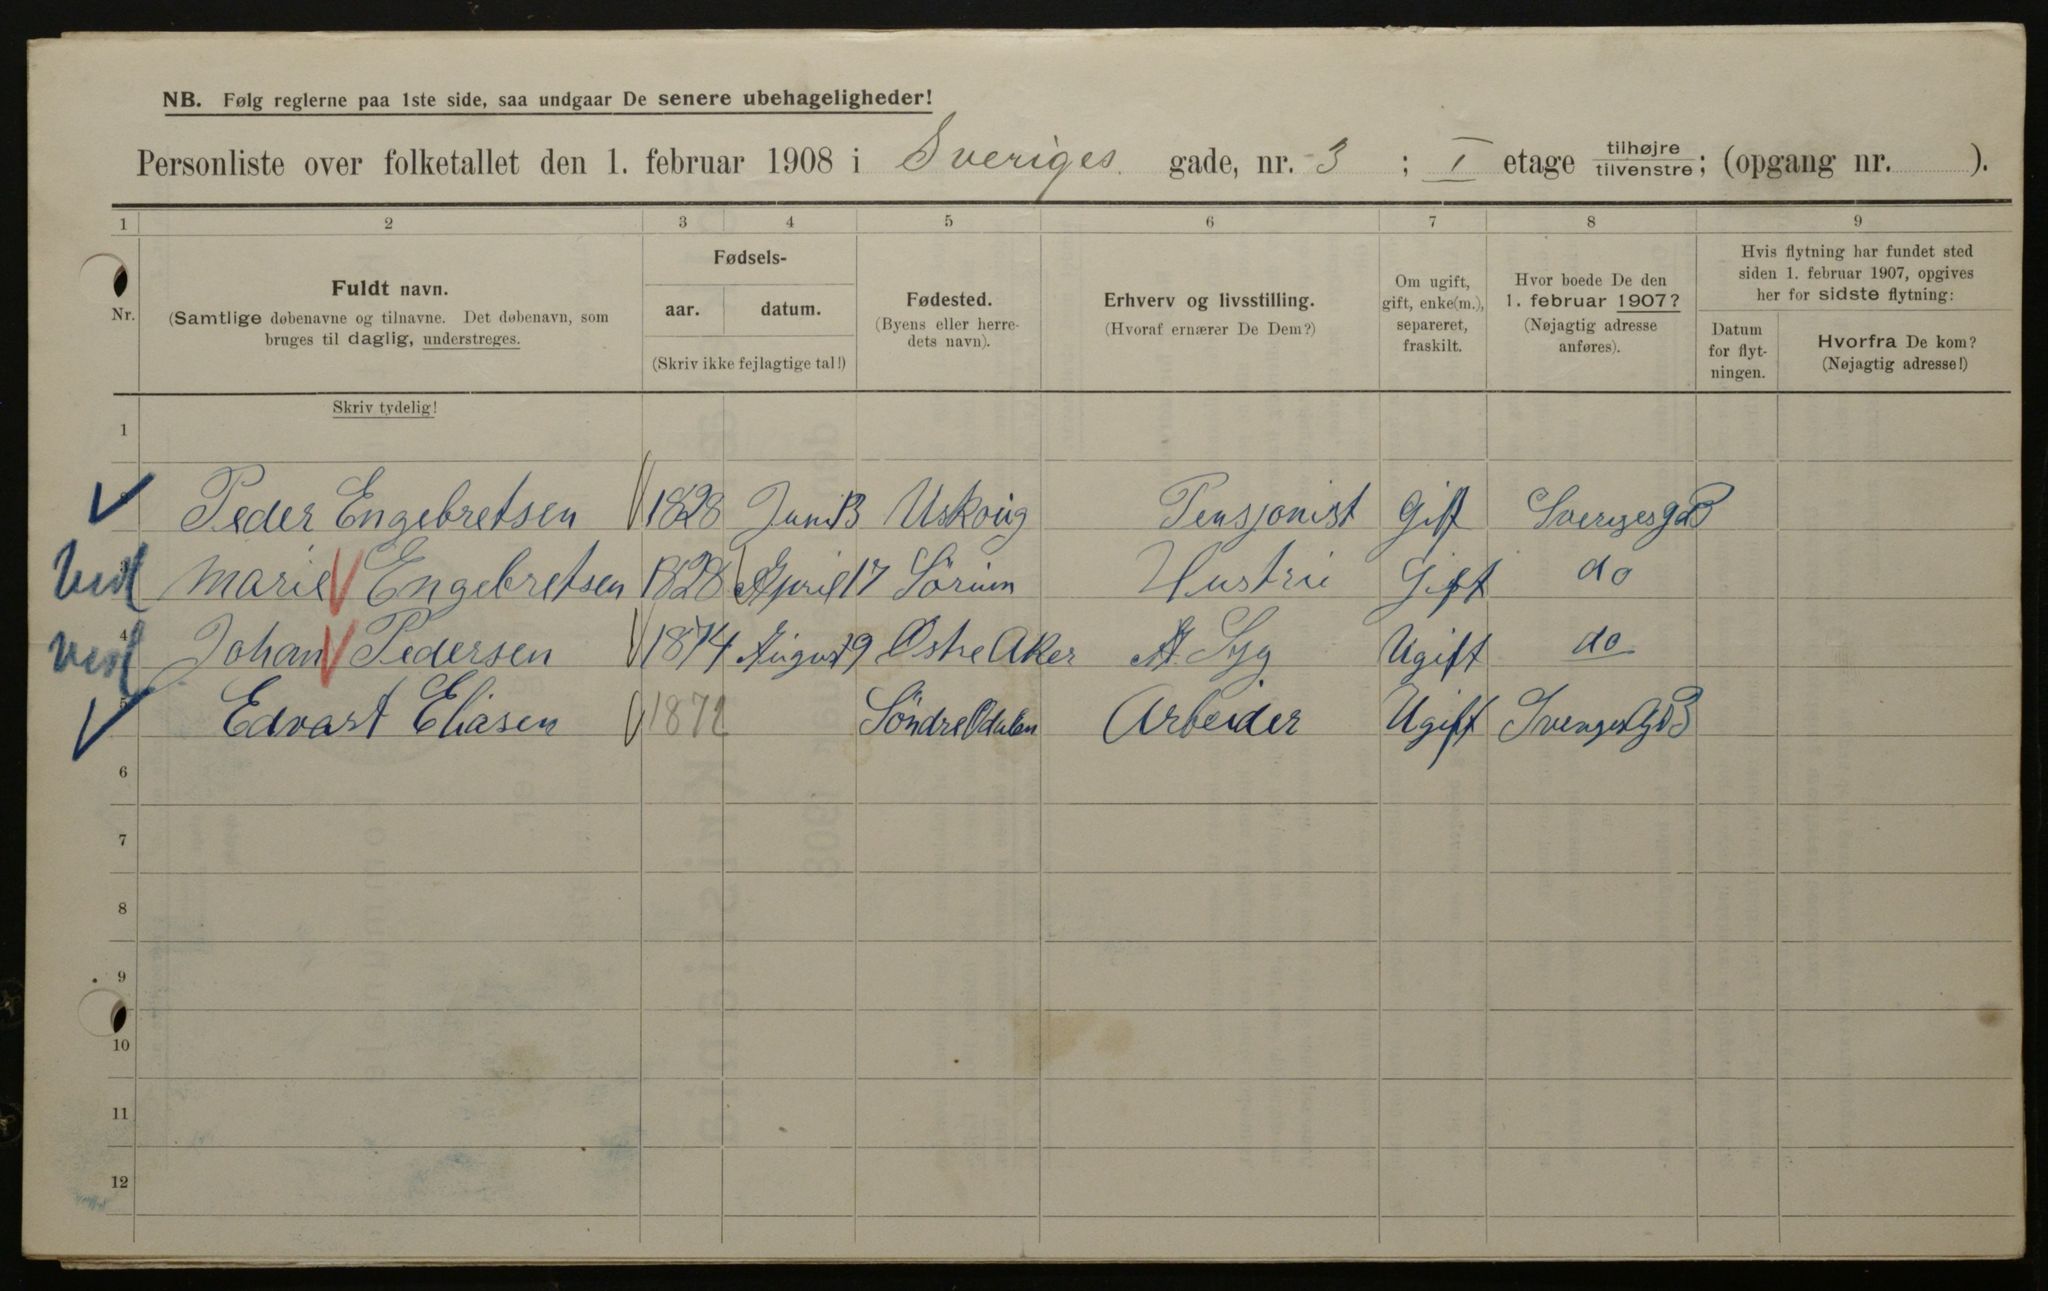 NB. Følg reglerne paa 1ste side, saa undgaar De senere ubehageligheder!
Personliste over folketallet den 1. februar 1908 i Sveriges gade, nr. 3 ; I etage tilhøjre tilvenstre; (opgang nr. ).
1 2 3 4 5 6 7 8 9
Nr.
Fuldt navn.
(Samtlige døbenavne og tilnavne. Det døbenavn, som
bruges til daglig, understreges.
Fødsels-
aar. datum.
(Skriv ikke fejlagtige tal!)
Fødested.
(Byens eller herre-
dets navn).
Erhverv og livsstilling.
(Hvoraf ernærer De Dem?)
Om ugift,
gift, enke(m.),
separeret,
fraskilt.
Hvor boede De den
1. februar 1907?
(Nøjagtig adresse
anføres).
Hvis flytning har fundet sted
siden 1. februar 1907, opgives
her for sidste flytning:
Datum
for flyt-
ningen.
Hvorfra De kom?
(Nøjagtig adresse!)
Skriv tydelig!
1
Peder Engebretsen 1828 Juni Pensjonist Gift
3 Marie Engebretsen 1828 April 17 Sörum Hustru Gift do
4 Johan Pedersen 1874 August 9 Østre Aker Syg Ugift do
5 Edvart Eliasen 1872 Söndre Odalen Arbeider Ugift
6
7
8
9
10
11
12